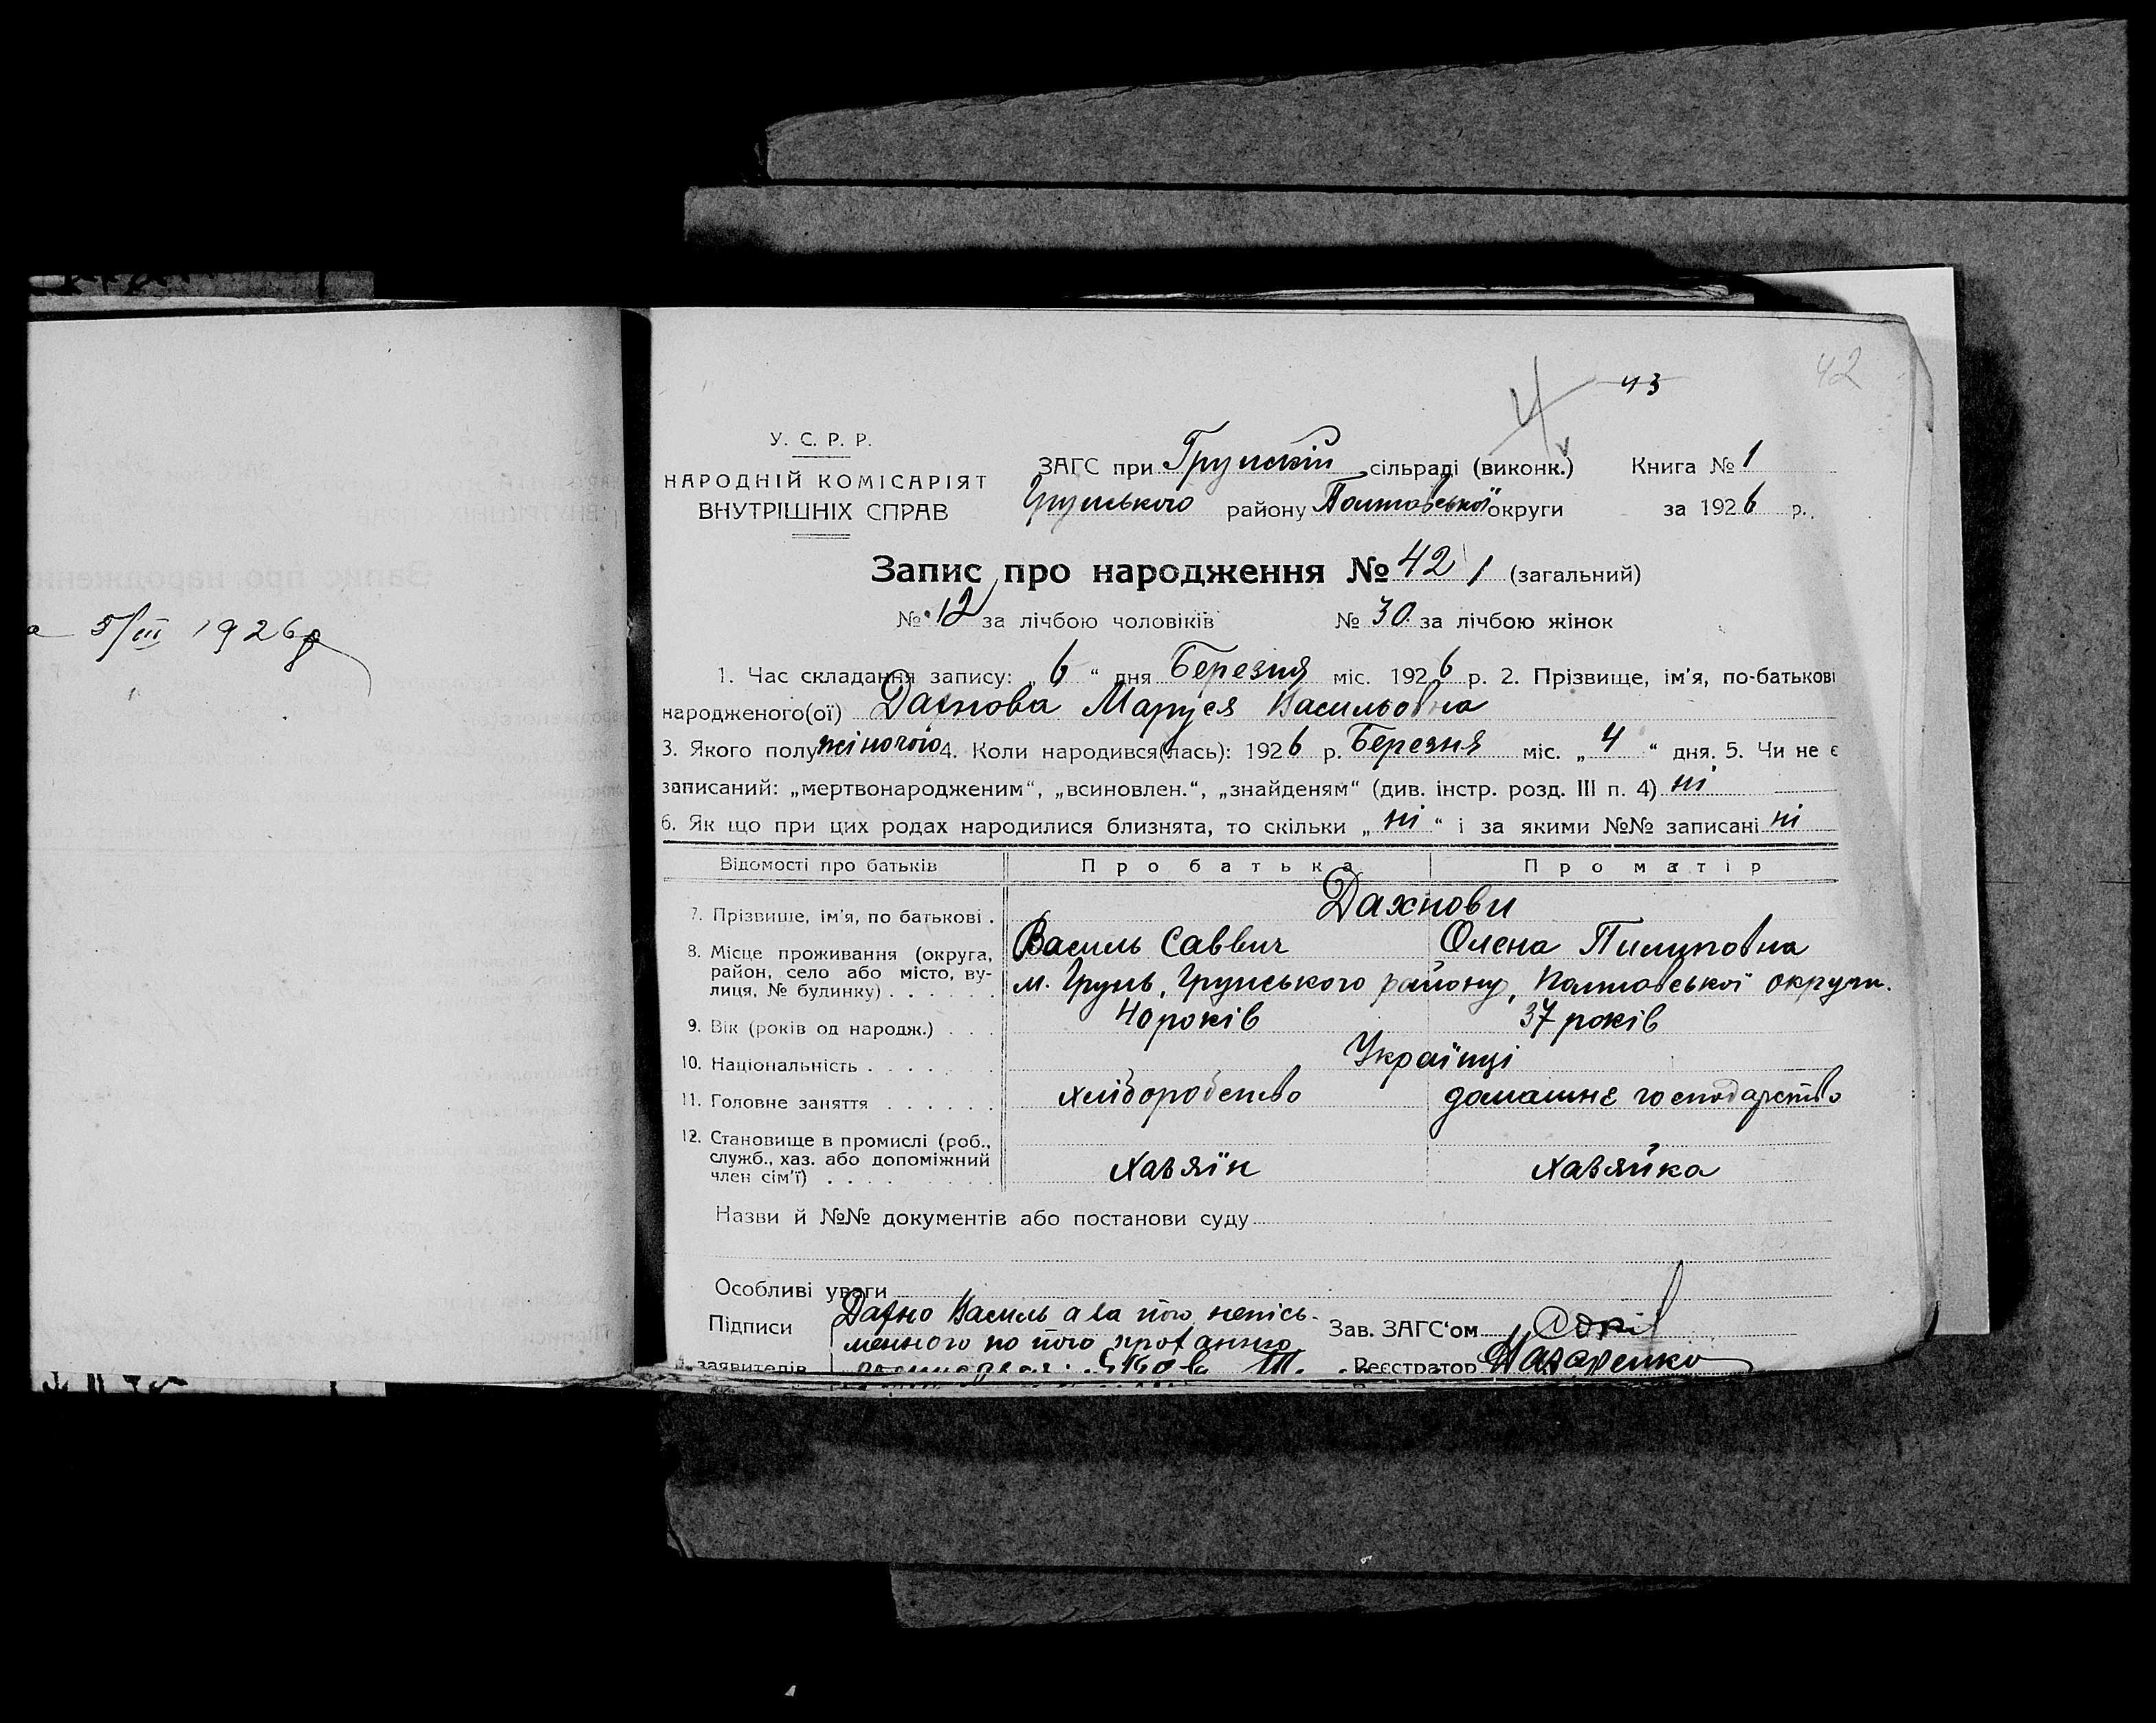 5/III 1926 р
43
42
У. С. Р. Р.
НАРОДНІЙ КОМІСАРІЯТ
ВНУТРІШНІХ СПРАВ
ЗАГС при Грунскій сільраді (виконк.) Книга № 1
Грунського району Полтавської округи за 1926 р.
Запис про народження № 42 (загальний)
№ 12 за лічбою чоловіків № 30 за лічбою жінок
1. Час складання запису: „ 6 “ дня Березня міс. 1926 р. 2. Прізвище, ім'я, по-батькові
народженого(ої) Дахнова Маруся Васильовна
3. Якого полу жіночого 4. Коли народився(лась): 1926 р. Березня міс. „ 4 “ дня. 5. Чи не є
записаний: „мертвонародженим“, „всиновлен.“, „знайденям“ (див. інстр. розд. III п. 4) ні
6. Як що при цих родах народилися близнята, то скільки „ ні “ і за якими №№ записані ні
Відомості про батьків Про батька Про матір
7. Прізвише, ім'я, по батькові . Дахнови
Василь Саввич Олена Пилиповна
8. Місце проживання (округа,
район, село або місто, ву-
лиця, № будинку) . . . . . . м. Грунь, Грунського району, Полтавської округи.
9. Вік (років од народж.) . . . 40 років 37 років
10. Національність . . . . . . . Українці
11. Головне заняття . . . . . . хліборобство домашнє господарство
12. Становище в промислі (роб.,
служб., хаз. або допоміжний
член сім'ї) . . . . . . . . . хазяїн хазяйка
Назви й №№ документів або постанови суду
Особливі уваги
Підписи Дахно Василь а за його непісь-
менного по його проханню
заявителів
Зав. ЗАГС'ом
Реєстратор Назаренко